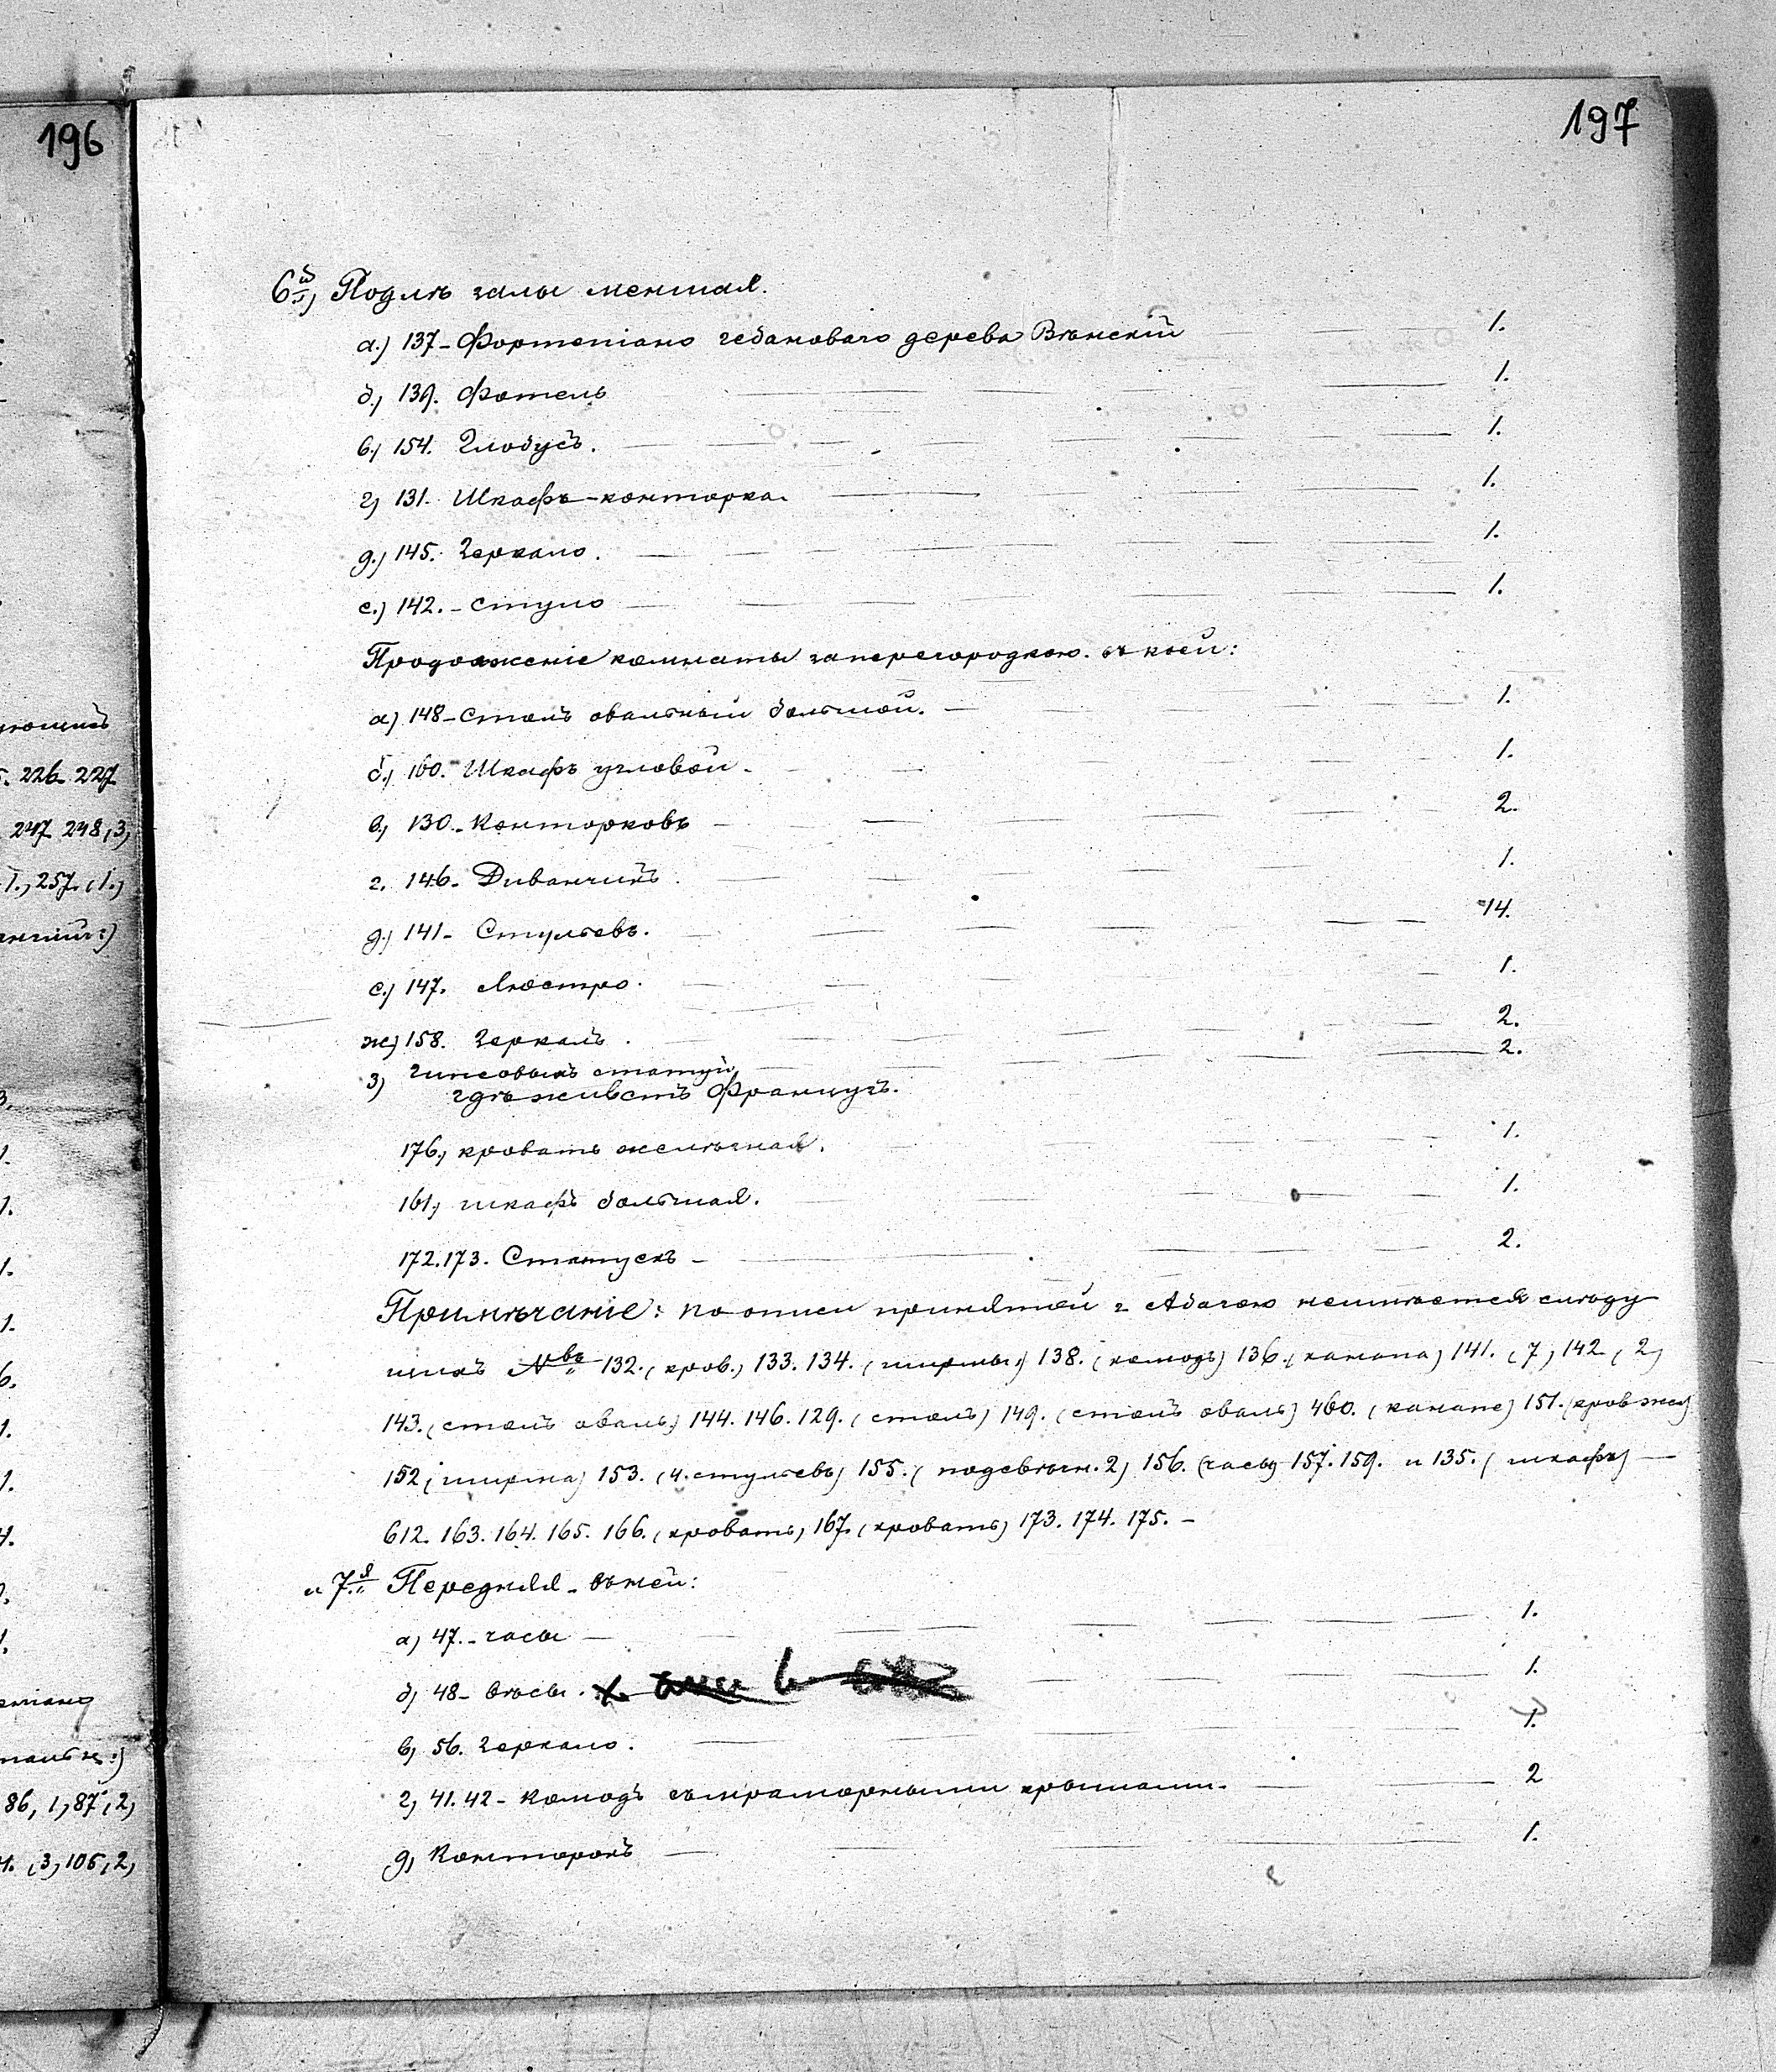 196
197
6й) Подлѣ залы меншая.
а.) 137 - Фортепіано гебановаго дерева Вѣнскій 1.
б.) 139. Фотель 1.
в) 154. Глобусъ. 1.
г) 131. Шкафъ-конторка. 1.
д.) 145. Зеркало. 1.
е.) 142. - стуло 1.
Продолженіе комнаты заперегородкою. въ коей:
а) 148 - столъ овальный большой. 1.
б.) 160. Шкафъ угловой. 1.
в) 130. - Конторковъ 2.
г. 146 - Диванчикъ. 1.
д.) 141 - Стульевъ. 14.
е.) 147. Люстро. 1.
ж) 158. Зеркалъ. 2.
з) Гипсовыхъ статуй 2.
гдѣ живетъ Французъ.
176, кровать желѣзная. 1.
161, шкафъ большая. 1.
172.173. Статуекъ - 2.
Примѣчаніе: по описи принятой г Абагою неимѣется слѣду
щихъ №въ 132. (кров.) 133. 134. (ширмы.) 138. (комодъ) 136. (канапа) 141. (7) 142 (2)
143. (столъ оваль.) 144. 146. 129. (столъ) 149. (столъ оваль) 460. (канапе) 151. (кров жел)
152 (ширма) 153. (4. стульевъ) 155. (подсвѣчн. 2) 156. (часы) 157. 159. и 135. (шкафъ)
612. 163. 164. 165. 166. (кровать) 167. (кровать) 173. 174. 175. -
и 7.я Передняя - въ ней:
а) 47. - часы 1.
б) 48 - вѣсы. 1.
в) 56. Зеркало. 1.
г) 41. 42 - Комодъ съ мраморными крышами. 2
д) Конторокъ 1.
226 - 227
247 248,3,
1., 257. (1.)
86, 1,87,2,
(3,105,2,